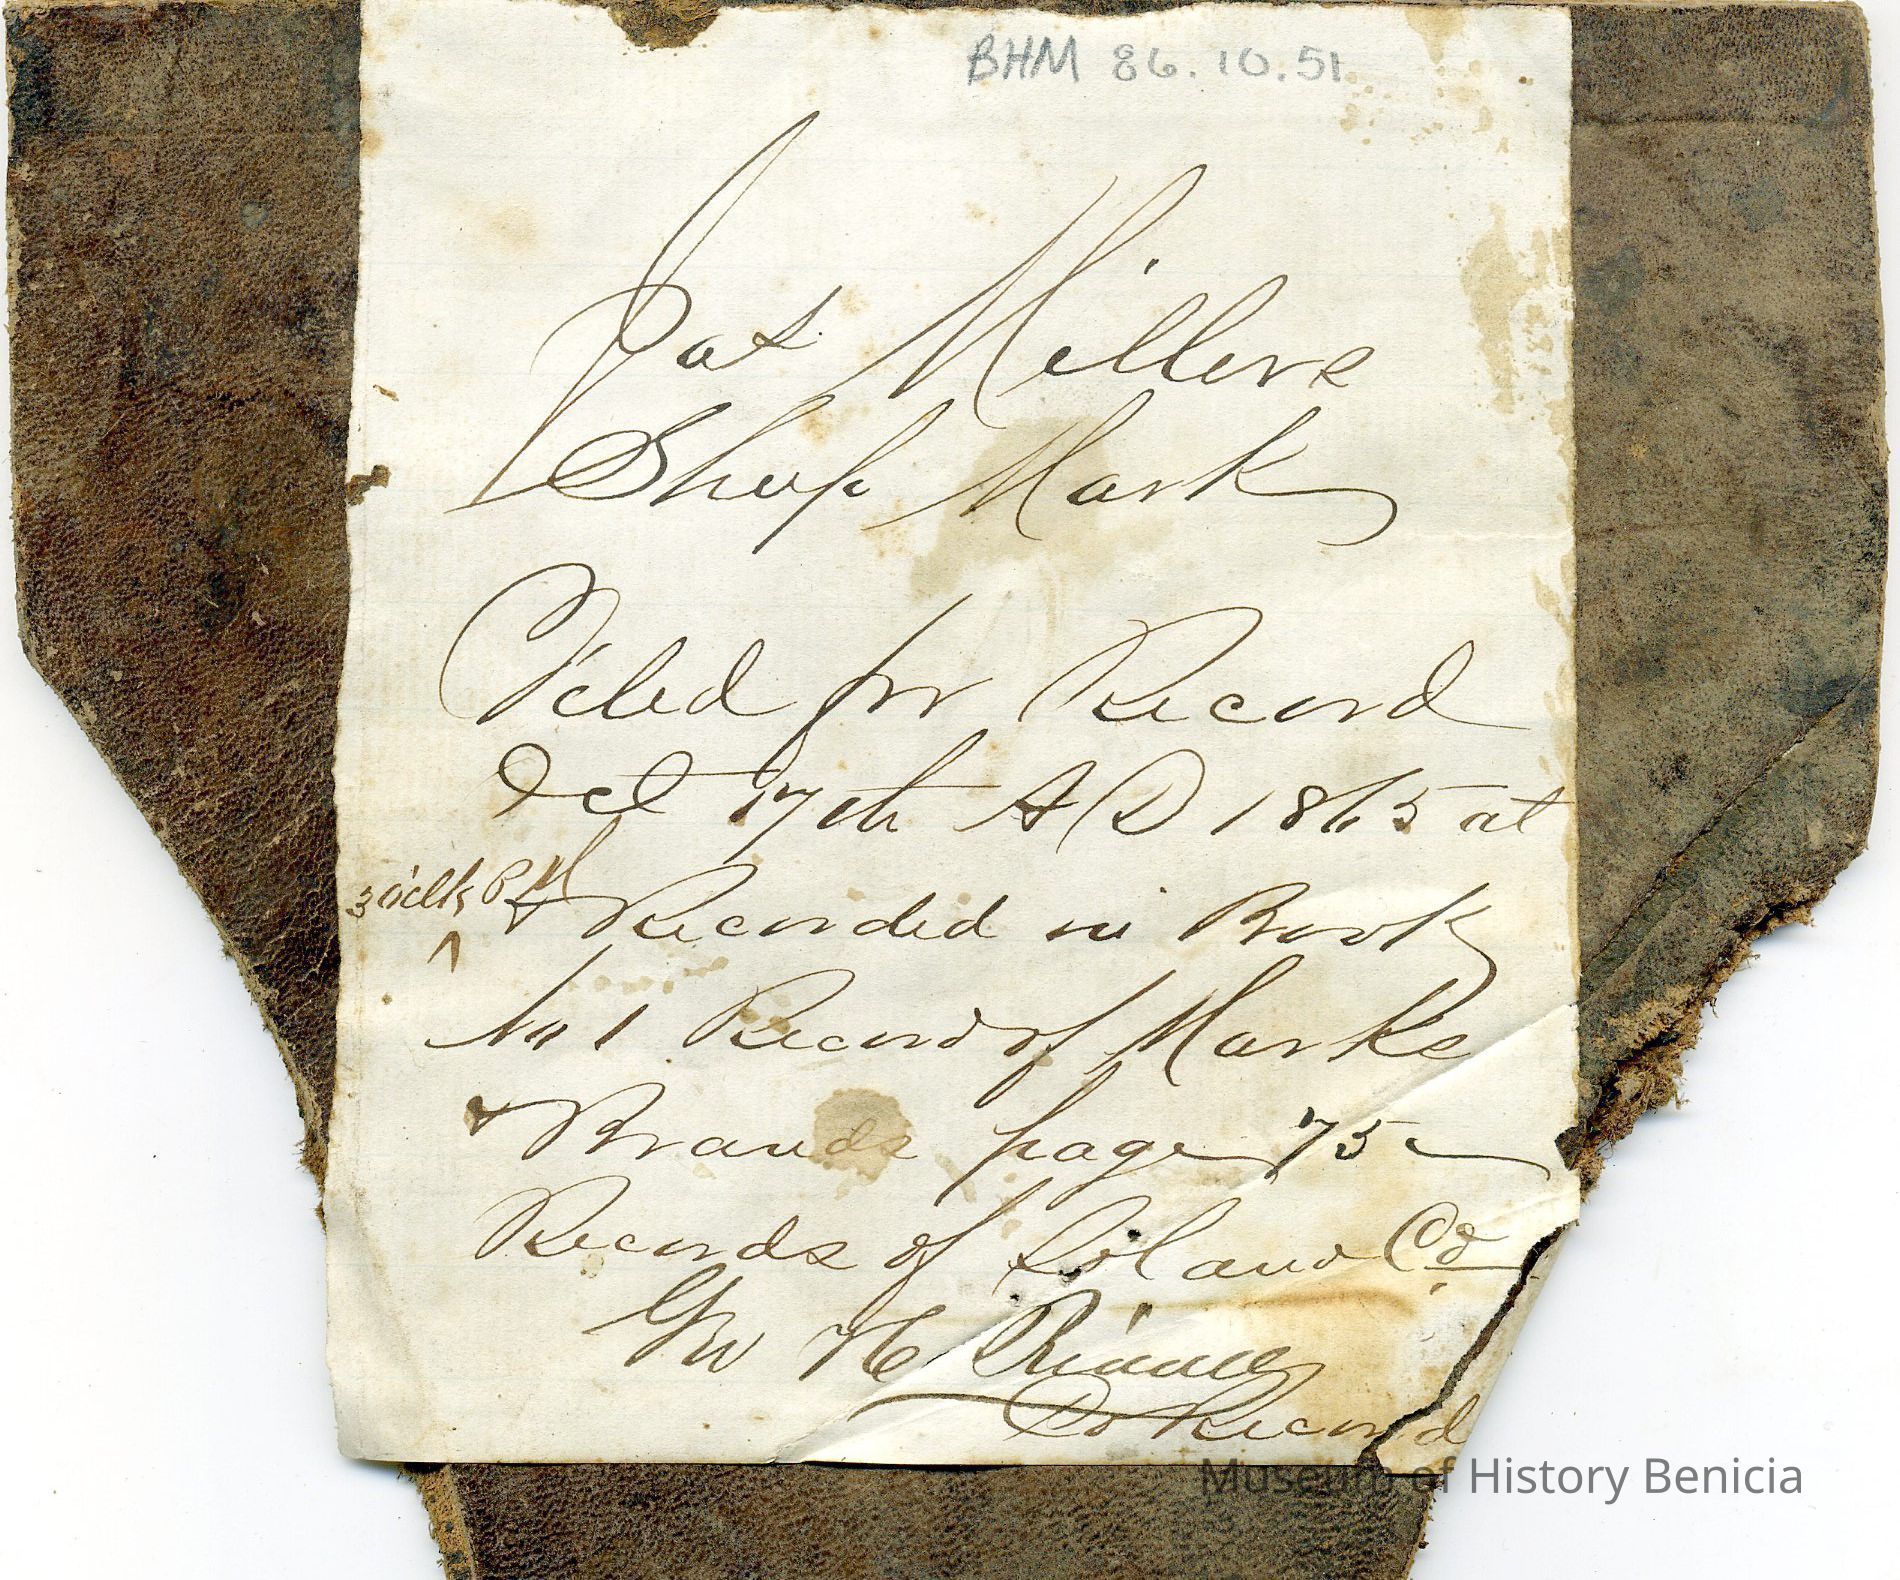 BHM 86.10.51
Jas Millers
Sheep Mark
Filed for Record
Oct 17th A D 1865 at
3 oclk P M
& Recorded in Book
No 1 Record of Marks
& Brands page 75
Records of Solano Co
Geo H
Co Record
Museum of History Benicia